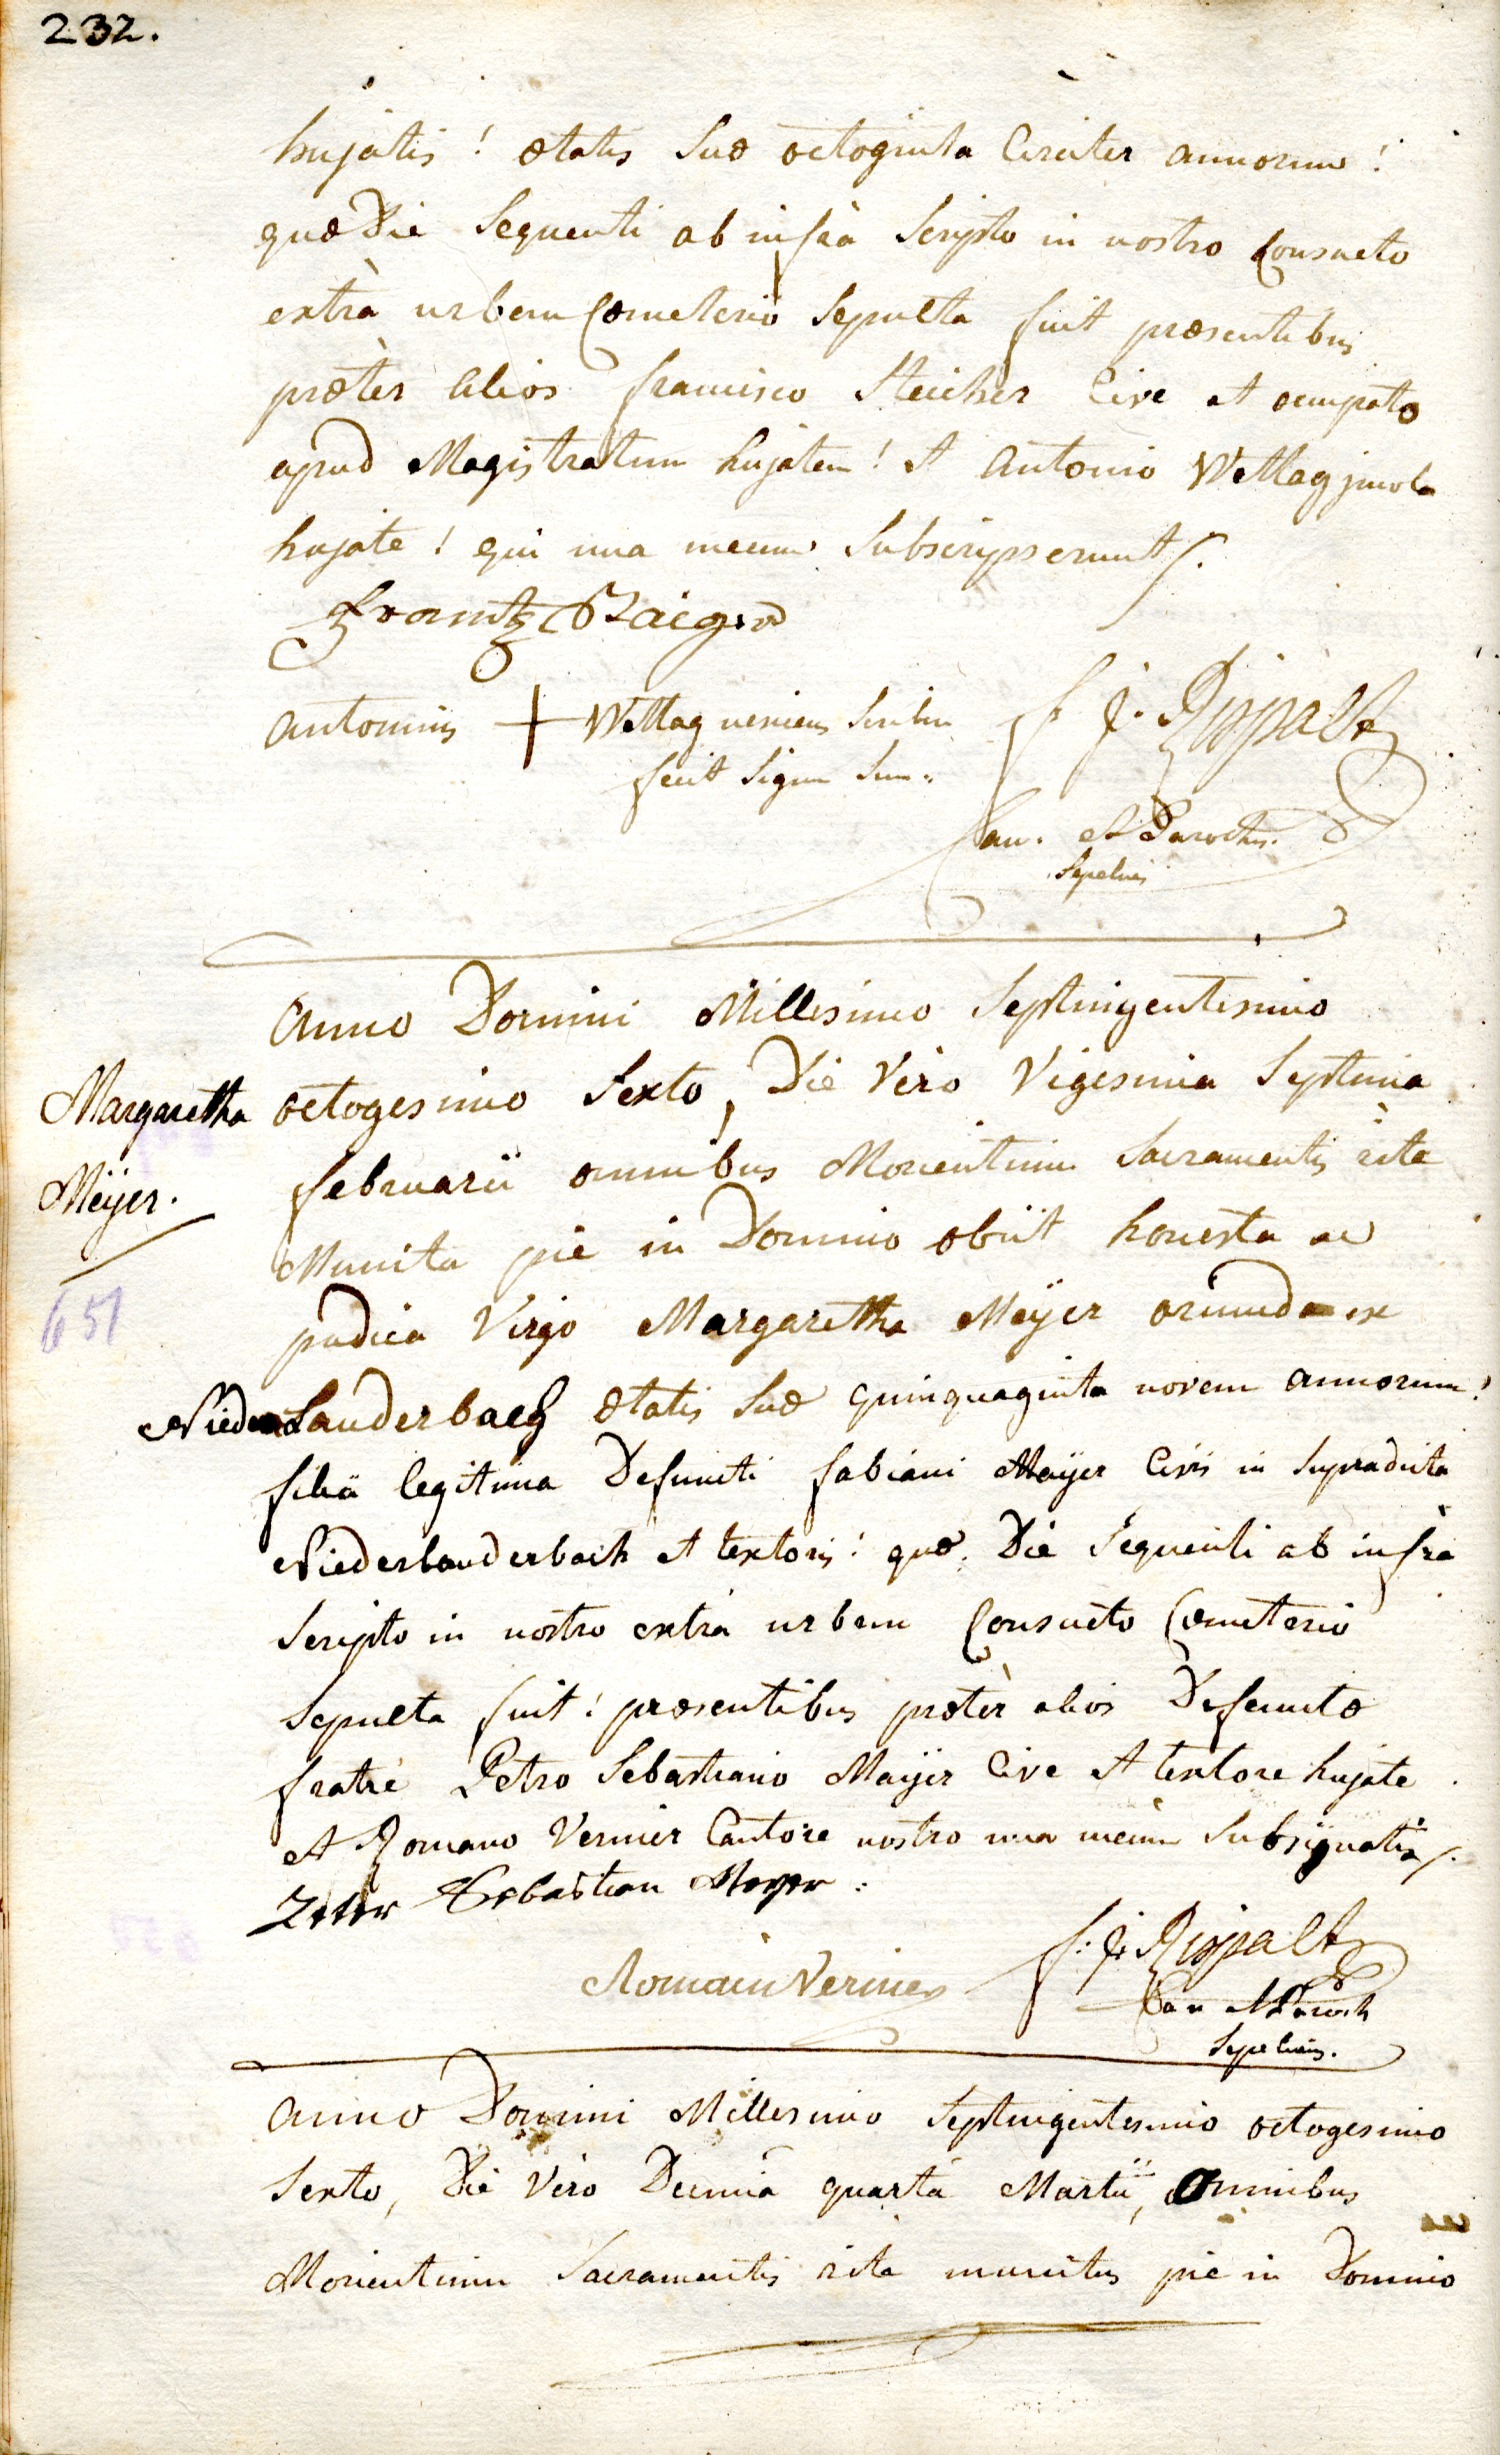 232.
hujatis! ætatis suæ octoginta Circiter annorum!
quæ Die Sequenti ab infrà Scripto in nostro Consueto
extrà urbem Cœmeterio Sepulta fuit præsentibus
prætèr alios francisco Steicher Cive et occupato
apud Magistratum hujatem! et Antonio Wettag incola
hujate! qui una mecum Subscripserunt/.
Frantz
Antonius + Wettag nesciens Scribere
fecit Signum Suum.
f j. Rippalt
Can. et Parochus.
Sepeliens
Anno Domini Millesimo Septingentesimo
Margaretha
Meÿer.
651
octogesimo Sexto, Die Vèro Vigesima Septima
februarii omnibus Morientium Sacramentis ritè
Munita piè in Domino obiit honesta ac
pudica Virgo Margaretha Meÿer oriunda ex
Nieder Lauderbach ætatis Suæ quinquaginta novem annorum!
filia legitima Defuncti fabiani Maÿer Civis in Supradicta
Niederlauderbach et textoris! quæ Die Sequenti ab infrà
Scripto in nostro extrà urbem Consueto Cœmeterio
Sepulta fuit! præsentibus prætèr alios Defunctæ
fratre Petro Sebastiano Maÿer Cive et textore hujate
et Romano Vernier Cantore nostro una mecùm Subsignatis/.
Peter Sebastian Meyer:
Romain Vernier
f: j: Rippalt
Can et Paroch
Sepeliens.
Anno Domini Millesimo Septingentesimo octogesimo
Sexto, Die Vèro Decima quarta Martii, Omnibus
Morientium Sacramentis ritè munitus piè in Domino